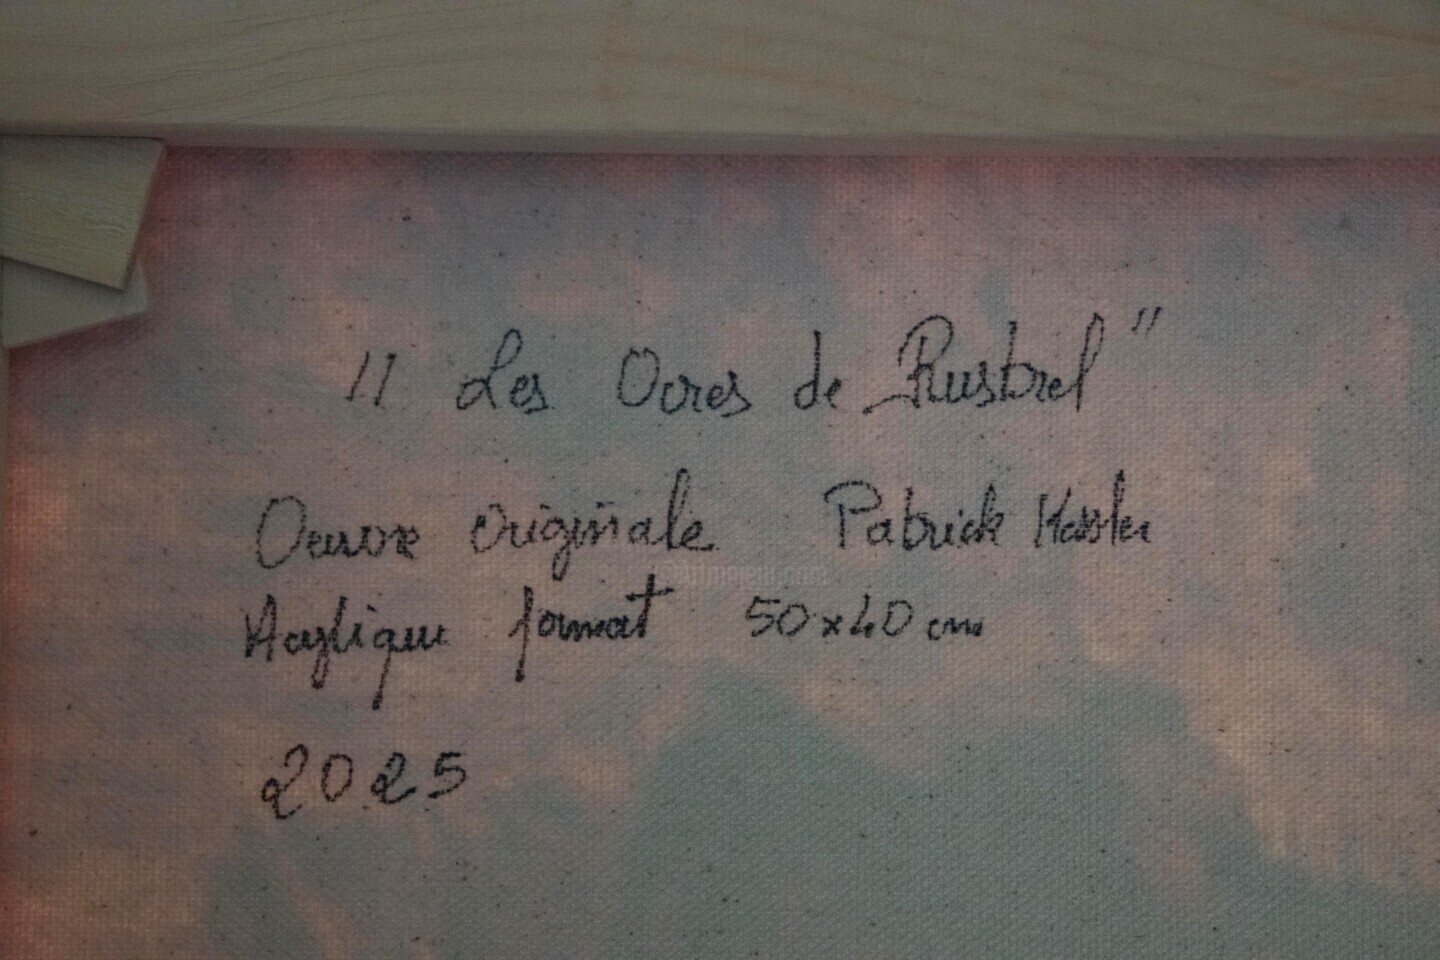 " Les Ocres de Rustrel "
Oeuvre originale Patrick Kessler
Acrylique format 50x40 cm
2025